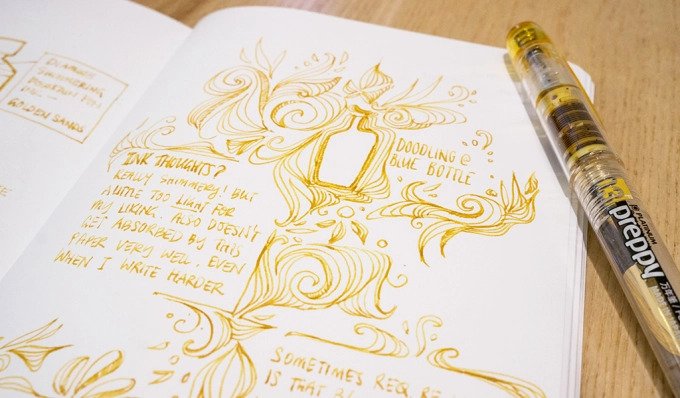 DIAMINE
SHIMMERING
FOUNTAIN PEN
INK —
GOLDEN SANDS
DOODLING @
BLUE BOTTLE
INK THOUGHTS?
REALLY SHIMMERY! BUT
A LITTLE TOO LIGHT FOR
MY LIKING. ALSO DOESN'T
GET ABSORBED BY THIS
PAPER VERY WELL. EVEN
WHEN I WRITE HARDER
SOMETIMES REQ. RE
IS THAT
PLATINUM
preppy
万年筆